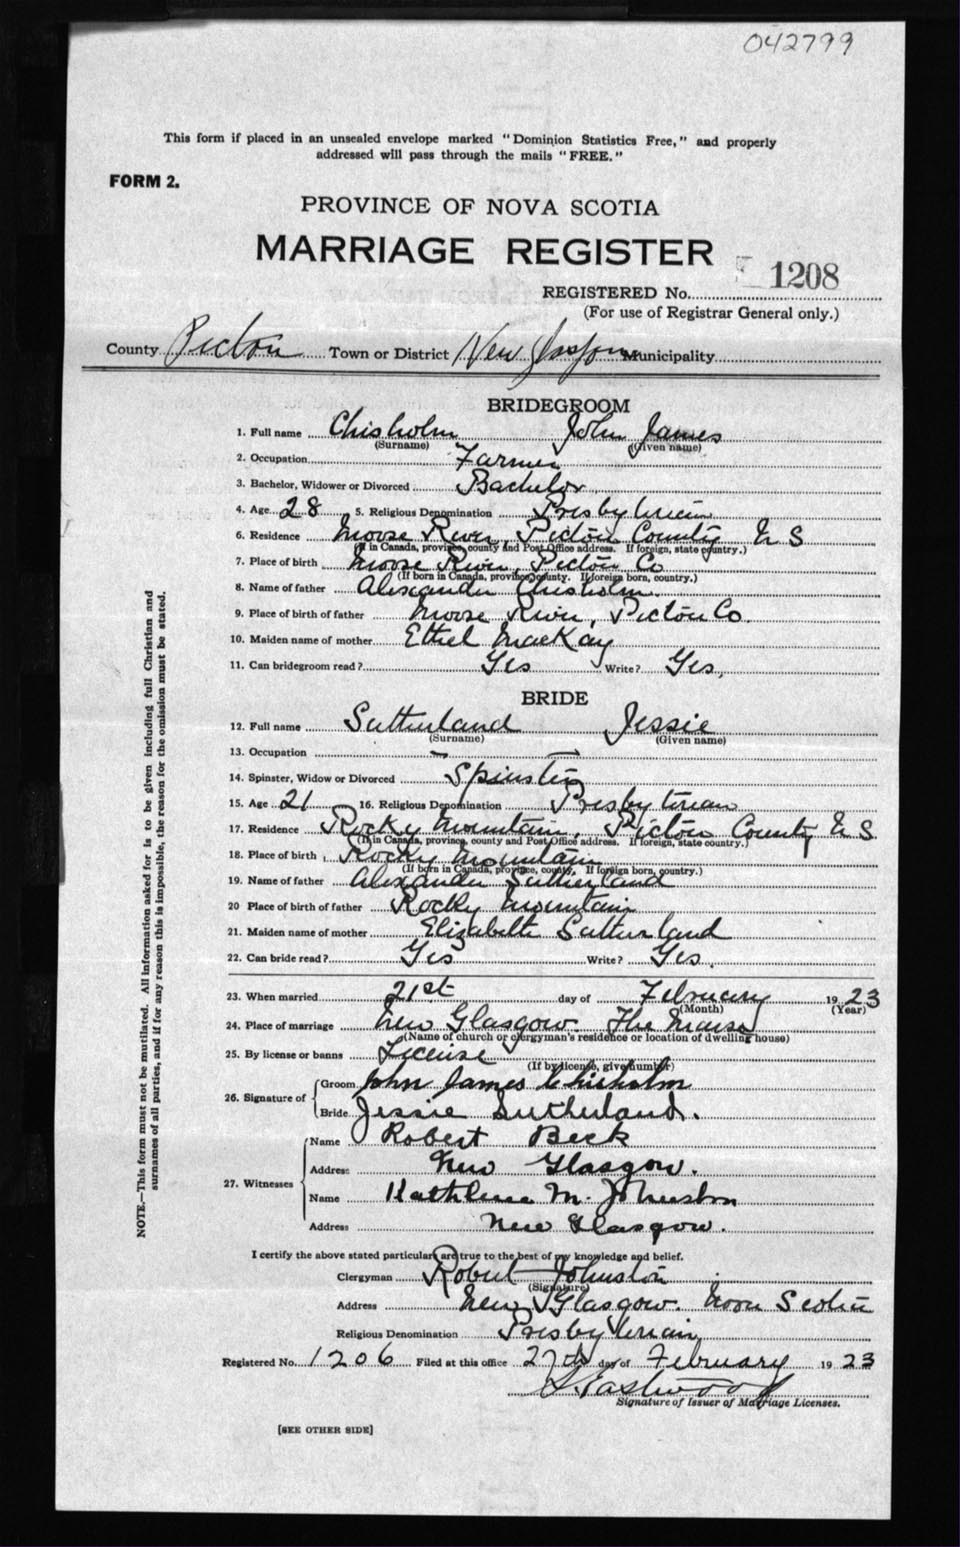 042799
This form if placed in an unsealed envelope marked "Dominion Statistics Free," and properly
addressed will pass through the mails "FREE."
FORM 2.
PROVINCE OF NOVA SCOTIA
MARRIAGE REGISTER
1208
REGISTERED No.
(For use of Registrar General only.)
County Pictou Town or District New Glasgow Municipality
BRIDEGROOM
1. Full name Chisholm John James
(Surname) (Given name)
2. Occupation Farmer
3. Bachelor, Widower or Divorced Bachelor
4. Age 28 5. Religious Denomination Presbyterian
6. Residence Moose River, Pictou County N S
(If in Canada, province, county and Post Office address. If foreign, state country.)
7. Place of birth Moose River, Pictou Co
(If born in Canada, province, county. If foreign born, country.)
8. Name of father Alexander Chisholm.
9. Place of birth of father Moose River, Pictou Co.
10. Maiden name of mother Ethel MacKay
11. Can bridegroom read? Yes Write? Yes,
BRIDE
12. Full name Sutherland Jessie
(Surname) (Given name)
13. Occupation
14. Spinster, Widow or Divorced Spinster
15. Age 21 16. Religious Denomination Presbyterian
17. Residence Rocky Mountain, Pictou County N S
(If in Canada, province, county and Post Office address. If foreign, state country.)
18. Place of birth Rocky Mountain
(If born in Canada, province, county, If foreign born, country.)
19. Name of father Alexander Sutherland
20 Place of birth of father Rocky Mountain
21. Maiden name of mother Elizabeth Sutherland
22. Can bride read? Yes Write? Yes.
23. When married 21st day of February 1923
(Month) (Year)
24. Place of marriage New Glasgow. The Manse
(Name of church or clergyman's residence or location of dwelling house)
25. By license or banns License
(If by license, give number)
26. Signature of
Groom John James Chisholm
Bride Jessie Sutherland.
27. Witnesses
Name Robert Beck
Address New Glasgow.
Name Kathleen M. Johnston
Address New Glasgow.
I certify the above stated particulars are true to the best of my knowledge and belief.
Clergyman Robert Johnston
(Signature)
Address New Glasgow. Nova Scotia
Religious Denomination Presbyterian
Registered No. 1206 Filed at this office 27th day of February 1923
Eastwood
Signature of Issuer of Marriage Licenses.
[SEE OTHER SIDE]
NOTE.—This form must not be mutilated. All information asked for is to be given including full Christian and
surnames of all parties, and if for any reason this is impossible, the reason for the omission must be stated.